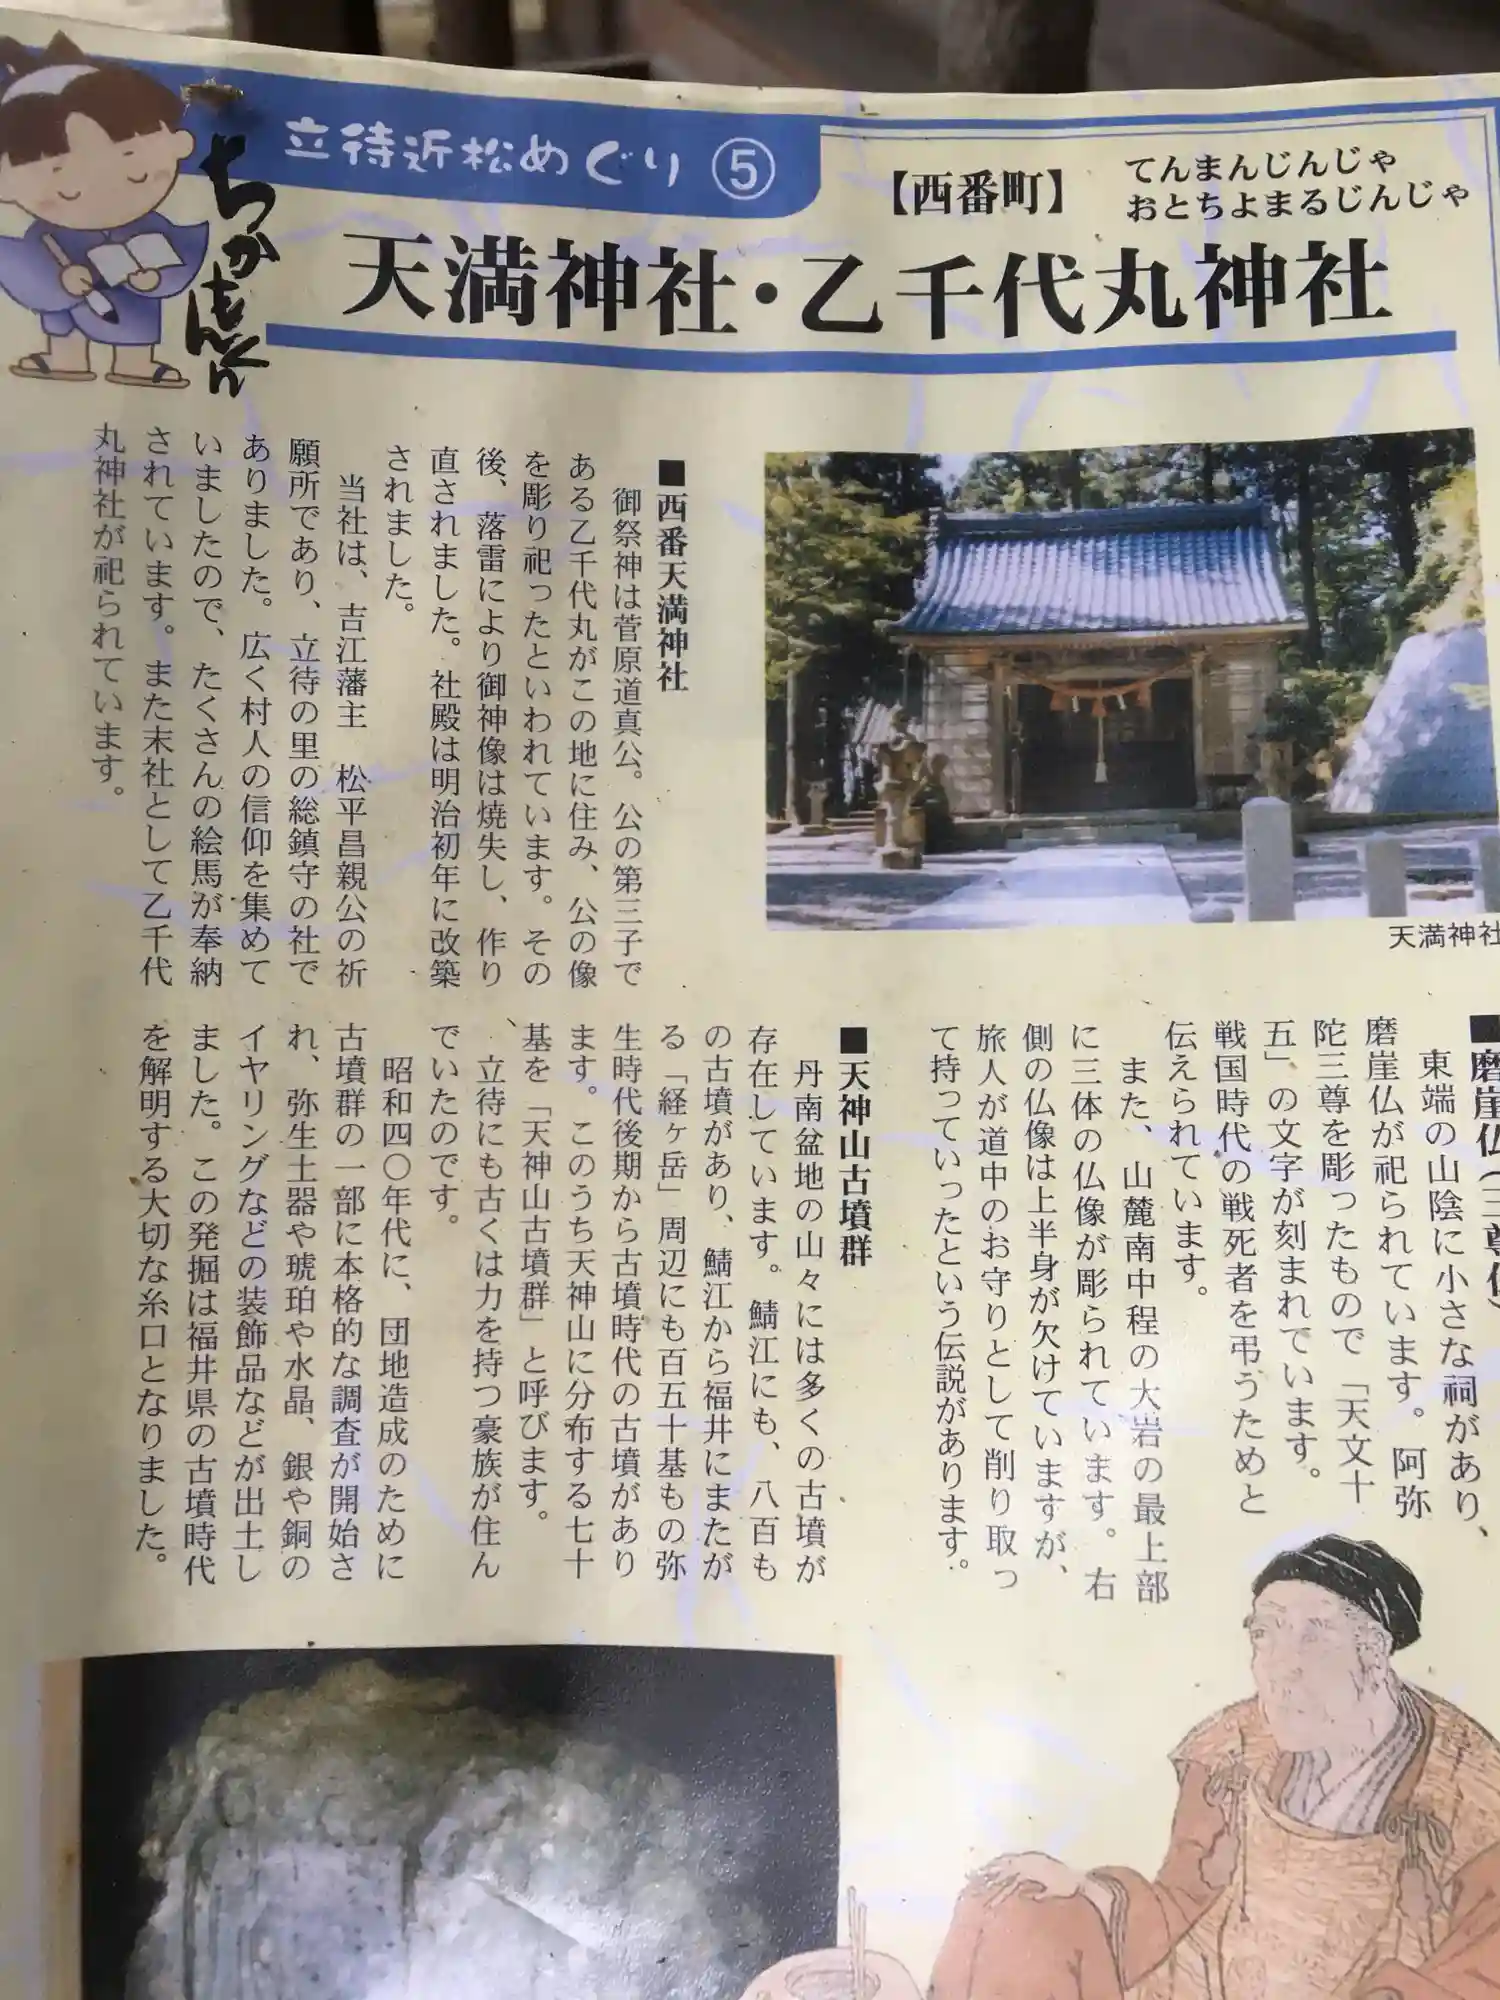 立待近松めぐり ⑤
ちかもんくん
【西番町】
てんまんじんじゃ
おとちよまるじんじゃ
天満神社・乙千代丸神社
■西番天満神社
御祭神は菅原道真公。公の第三子で
ある乙千代丸がこの地に住み、公の像
を彫り祀ったといわれています。その
後、落雷により御神像は焼失し、作り
直されました。社殿は明治初年に改築
されました。
当社は、吉江藩主 松平昌親公の祈
願所であり、立待の里の総鎮守の社で
ありました。広く村人の信仰を集めて
いましたので、たくさんの絵馬が奉納
されています。また末社として乙千代
丸神社が祀られています。
天満神社
■磨崖仏(三尊仏)
東端の山陰に小さな祠があり、
磨崖仏が祀られています。阿弥
陀三尊を彫ったもので「天文十
五」の文字が刻まれています。
戦国時代の戦死者を弔うためと
伝えられています。
また、山麓南中程の大岩の最上部
に三体の仏像が彫られています。右
側の仏像は上半身が欠けていますが、
旅人が道中のお守りとして削り取っ
て持っていったという伝説があります。
■天神山古墳群
丹南盆地の山々には多くの古墳が
存在しています。鯖江にも、八百も
の古墳があり、鯖江から福井にまたが
る「経ヶ岳」周辺にも百五十基もの弥
生時代後期から古墳時代の古墳があり
ます。このうち天神山に分布する七十
基を「天神山古墳群」と呼びます。
立待にも古くは力を持つ豪族が住ん
でいたのです。
昭和四〇年代に、団地造成のために
古墳群の一部に本格的な調査が開始さ
れ、弥生土器や琥珀や水晶、銀や銅の
イヤリングなどの装飾品などが出土し
ました。この発掘は福井県の古墳時代
を解明する大切な糸口となりました。